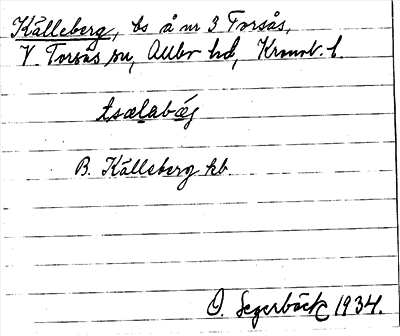 Källeberg, bs å nr 3 Torsås,
V. Torsås sn, Allbo hd, Kronob. l.
tsælabærj
B. Källeberg kb
O. Segerbäck 1934.